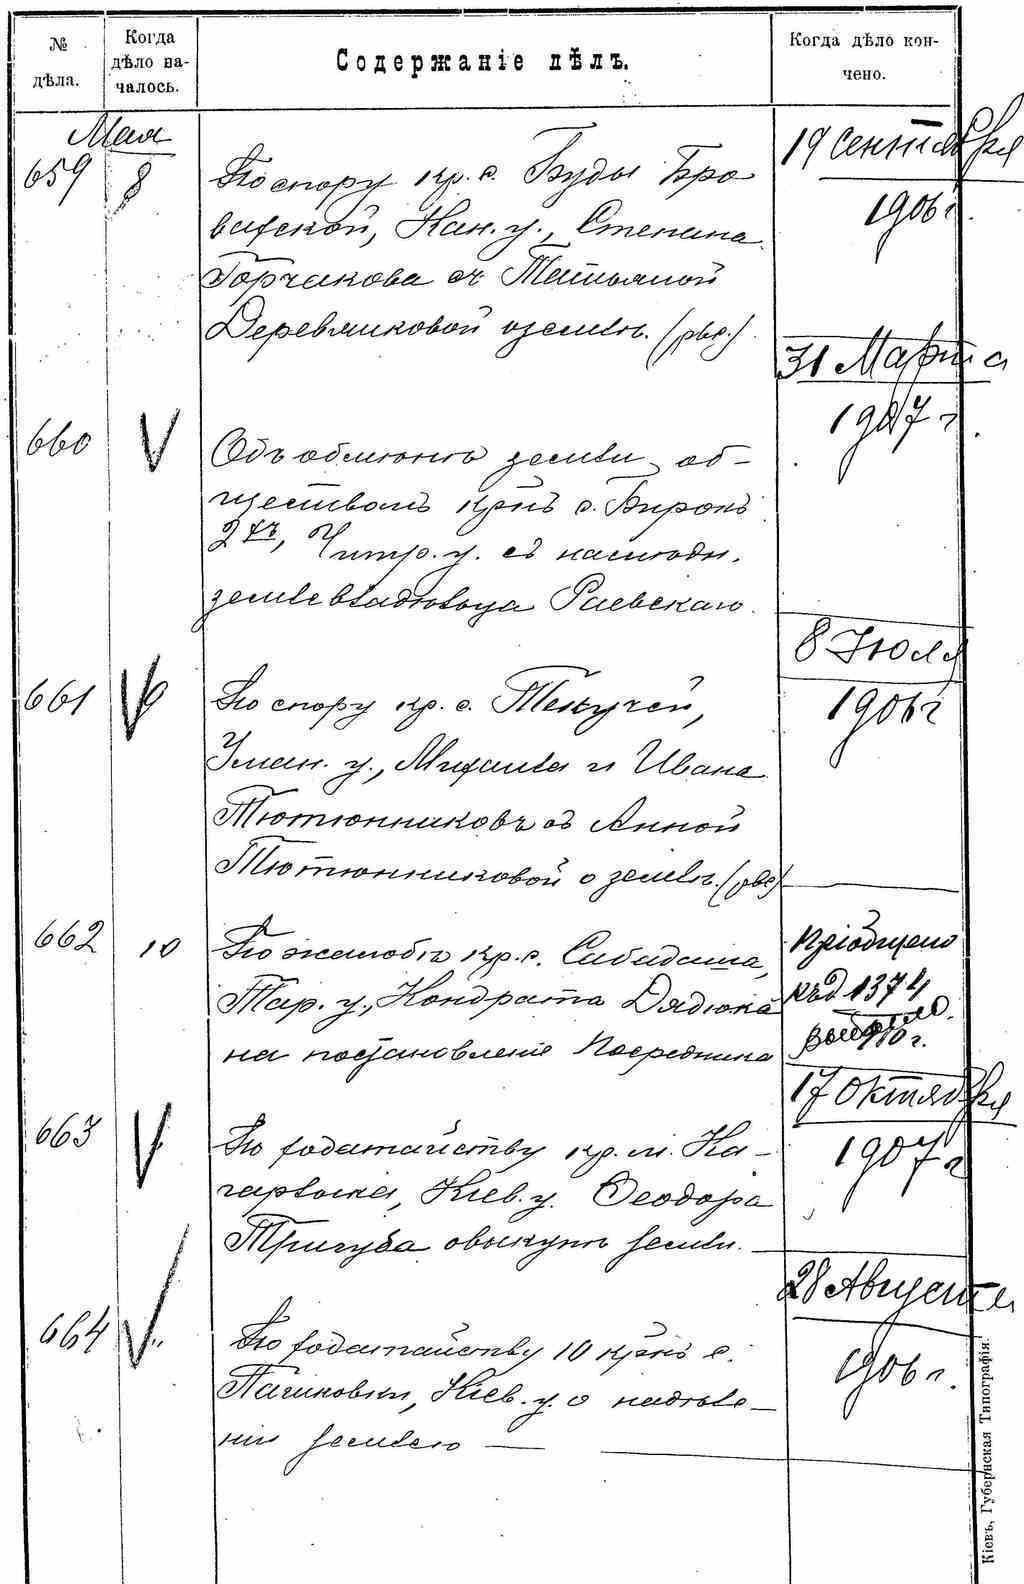 № дѣла.
Когда дѣло на-
чалось.
Содержаніе дѣлъ.
Когда дѣло кон-
чено.
Мая
659 8 По спору кр. с. Буды Бро-
ватской, Кан. у., Степана
Горчакова съ Татьяной
Деревянковой о землѣ.
19 Сентября
1906 г.
660 Объ обмѣнѣ земли об-
ществомъ крнъ с. Бирокъ
2 хъ, Чигир. у. съ наслѣдн.
землевладѣльца Раевскаго.
31 Марта
1907 г.
661 9 По спору кр. с. Текучей,
Уман. у., Михаила и Ивана
Тютюнниковъ съ Анной
Тютюнниковой о землѣ.
8 Іюля
1906 г
662 10 По жалобѣ кр. с. Сабадаша,
Тар. у., Кондрата Дядюка
на постановленіе Посредника
Пріобщено
къ д 1374
910 г.
663 По ходатайству кр. м. Ка-
гарлыка, Кіев. у. Ѳеодора
Тригуба о выкупѣ земли.
17 Октября
1907 г
664 По ходатайству 10 крнъ с.
Пашковки, Кіев. у. о надѣле-
ніи землею
28 Августа
1906 г.
Кіевъ, Губернская Типографія.